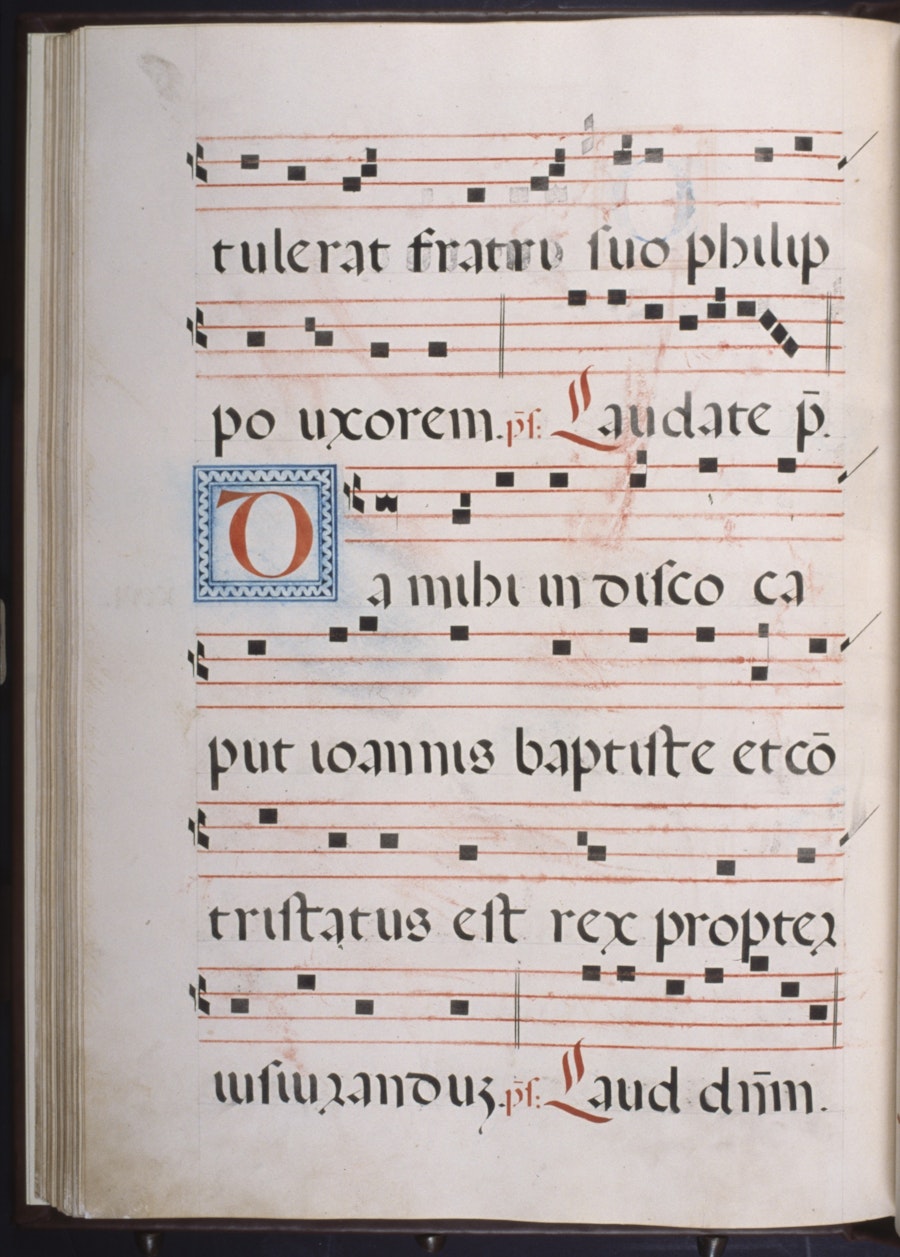 tulerat fratri suo philip
po uxorem. p̄s: Laudate p̄.
Da mihi in disco ca
put ioannis baptiste et cō
tristatus est rex propter
iusiuranduz. p̄s: Laud dn̄m.